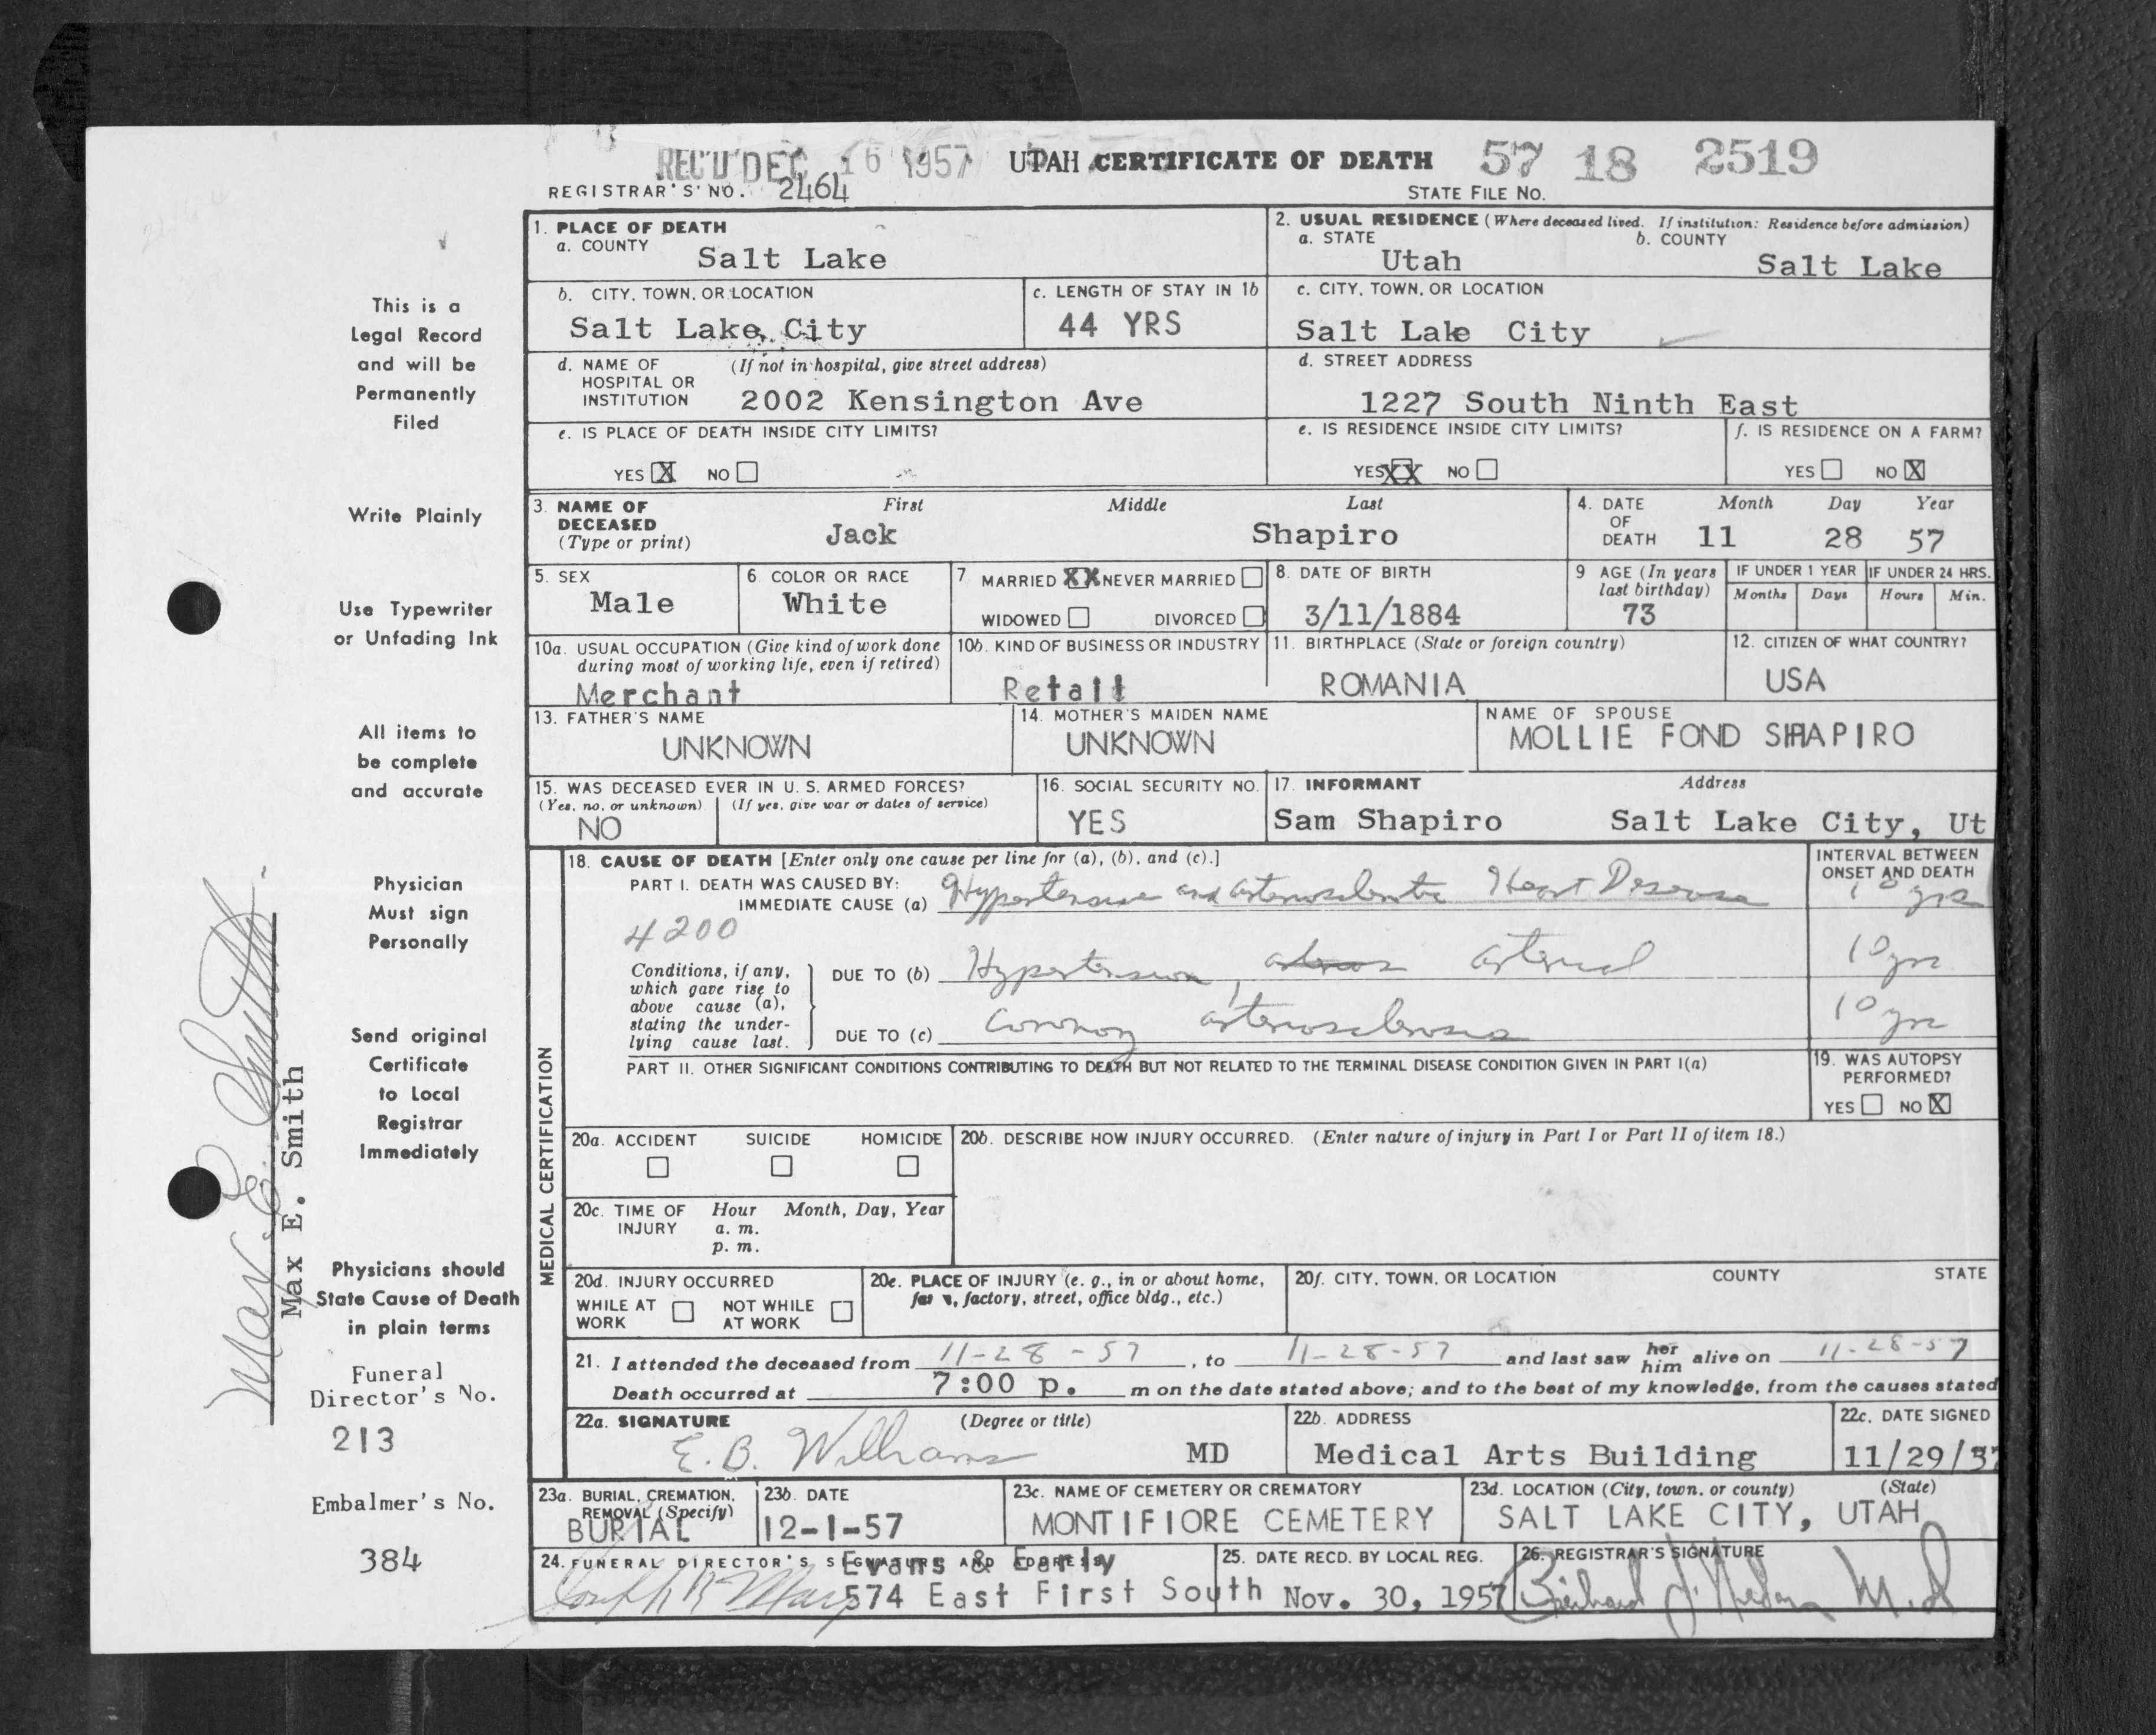 REC'D DEC 16 1957 UTAH CERTIFICATE OF DEATH 57 18 2519
REGISTRAR'S NO. 2464 STATE FILE NO.
1. PLACE OF DEATH
a. COUNTY Salt Lake
2. USUAL RESIDENCE (Where deceased lived. If institution: Residence before admission)
a. STATE Utah b. COUNTY Salt Lake
b. CITY, TOWN, OR LOCATION Salt Lake City
c. LENGTH OF STAY IN 1b 44 YRS
c. CITY, TOWN, OR LOCATION Salt Lake City
d. NAME OF HOSPITAL OR INSTITUTION (If not in hospital, give street address) 2002 Kensington Ave
d. STREET ADDRESS 1227 South Ninth East
e. IS PLACE OF DEATH INSIDE CITY LIMITS?
YES X NO
e. IS RESIDENCE INSIDE CITY LIMITS?
YES XX NO
f. IS RESIDENCE ON A FARM?
YES NO X
3. NAME OF DECEASED (Type or print)
First Middle Last
Jack Shapiro
4. DATE OF DEATH Month Day Year
11 28 57
5. SEX Male
6. COLOR OR RACE White
7 MARRIED XX NEVER MARRIED
WIDOWED DIVORCED
8. DATE OF BIRTH 3/11/1884
9 AGE (In years last birthday) 73
IF UNDER 1 YEAR Months Days
IF UNDER 24 HRS. Hours Min.
10a. USUAL OCCUPATION (Give kind of work done during most of working life, even if retired)
Merchant
10b. KIND OF BUSINESS OR INDUSTRY
Retail
11. BIRTHPLACE (State or foreign country)
ROMANIA
12. CITIZEN OF WHAT COUNTRY?
USA
13. FATHER'S NAME
UNKNOWN
14. MOTHER'S MAIDEN NAME
UNKNOWN
NAME OF SPOUSE
MOLLIE FOND SHAPIRO
15. WAS DECEASED EVER IN U. S. ARMED FORCES?
(Yes, no, or unknown) (If yes, give war or dates of service)
NO
16. SOCIAL SECURITY NO.
YES
17. INFORMANT Address
Sam Shapiro Salt Lake City, Ut
MEDICAL CERTIFICATION
18. CAUSE OF DEATH [Enter only one cause per line for (a), (b), and (c).]
INTERVAL BETWEEN ONSET AND DEATH
PART I. DEATH WAS CAUSED BY:
IMMEDIATE CAUSE (a) Hypertensive and arteriosclerotic Heart Disease 10 yrs
4200
Conditions, if any, which gave rise to above cause (a), stating the underlying cause last.
DUE TO (b) Hypertension, arterial 10 yrs
DUE TO (c) Coronary arteriosclerosis 10 yrs
PART II. OTHER SIGNIFICANT CONDITIONS CONTRIBUTING TO DEATH BUT NOT RELATED TO THE TERMINAL DISEASE CONDITION GIVEN IN PART I(a)
19. WAS AUTOPSY PERFORMED?
YES NO X
20a. ACCIDENT SUICIDE HOMICIDE
20b. DESCRIBE HOW INJURY OCCURRED. (Enter nature of injury in Part I or Part II of item 18.)
20c. TIME OF INJURY Hour Month, Day, Year
a. m.
p. m.
20d. INJURY OCCURRED
WHILE AT WORK NOT WHILE AT WORK
20e. PLACE OF INJURY (e. g., in or about home, farm, factory, street, office bldg., etc.)
20f. CITY, TOWN, OR LOCATION COUNTY STATE
21. I attended the deceased from 11-28-57, to 11-28-57 and last saw her him alive on 11-28-57
Death occurred at 7:00 p. m on the date stated above; and to the best of my knowledge, from the causes stated
22a. SIGNATURE (Degree or title)
E. B. Williams MD
22b. ADDRESS
Medical Arts Building
22c. DATE SIGNED
11/29/57
23a. BURIAL, CREMATION, REMOVAL (Specify)
BURIAL
23b. DATE
12-1-57
23c. NAME OF CEMETERY OR CREMATORY
MONTIFIORE CEMETERY
23d. LOCATION (City, town, or county) (State)
SALT LAKE CITY, UTAH
24. FUNERAL DIRECTOR'S SIGNATURE AND ADDRESS
Evans & Early
574 East First South
25. DATE RECD. BY LOCAL REG.
Nov. 30, 1957
26. REGISTRAR'S SIGNATURE
M.D
This is a
Legal Record
and will be
Permanently
Filed
Write Plainly
Use Typewriter
or Unfading Ink
All items to
be complete
and accurate
Physician
Must sign
Personally
Send original
Certificate
to Local
Registrar
Immediately
Physicians should
State Cause of Death
in plain terms
Funeral
Director's No.
213
Embalmer's No.
384
Max E. Smith
Max E. Smith